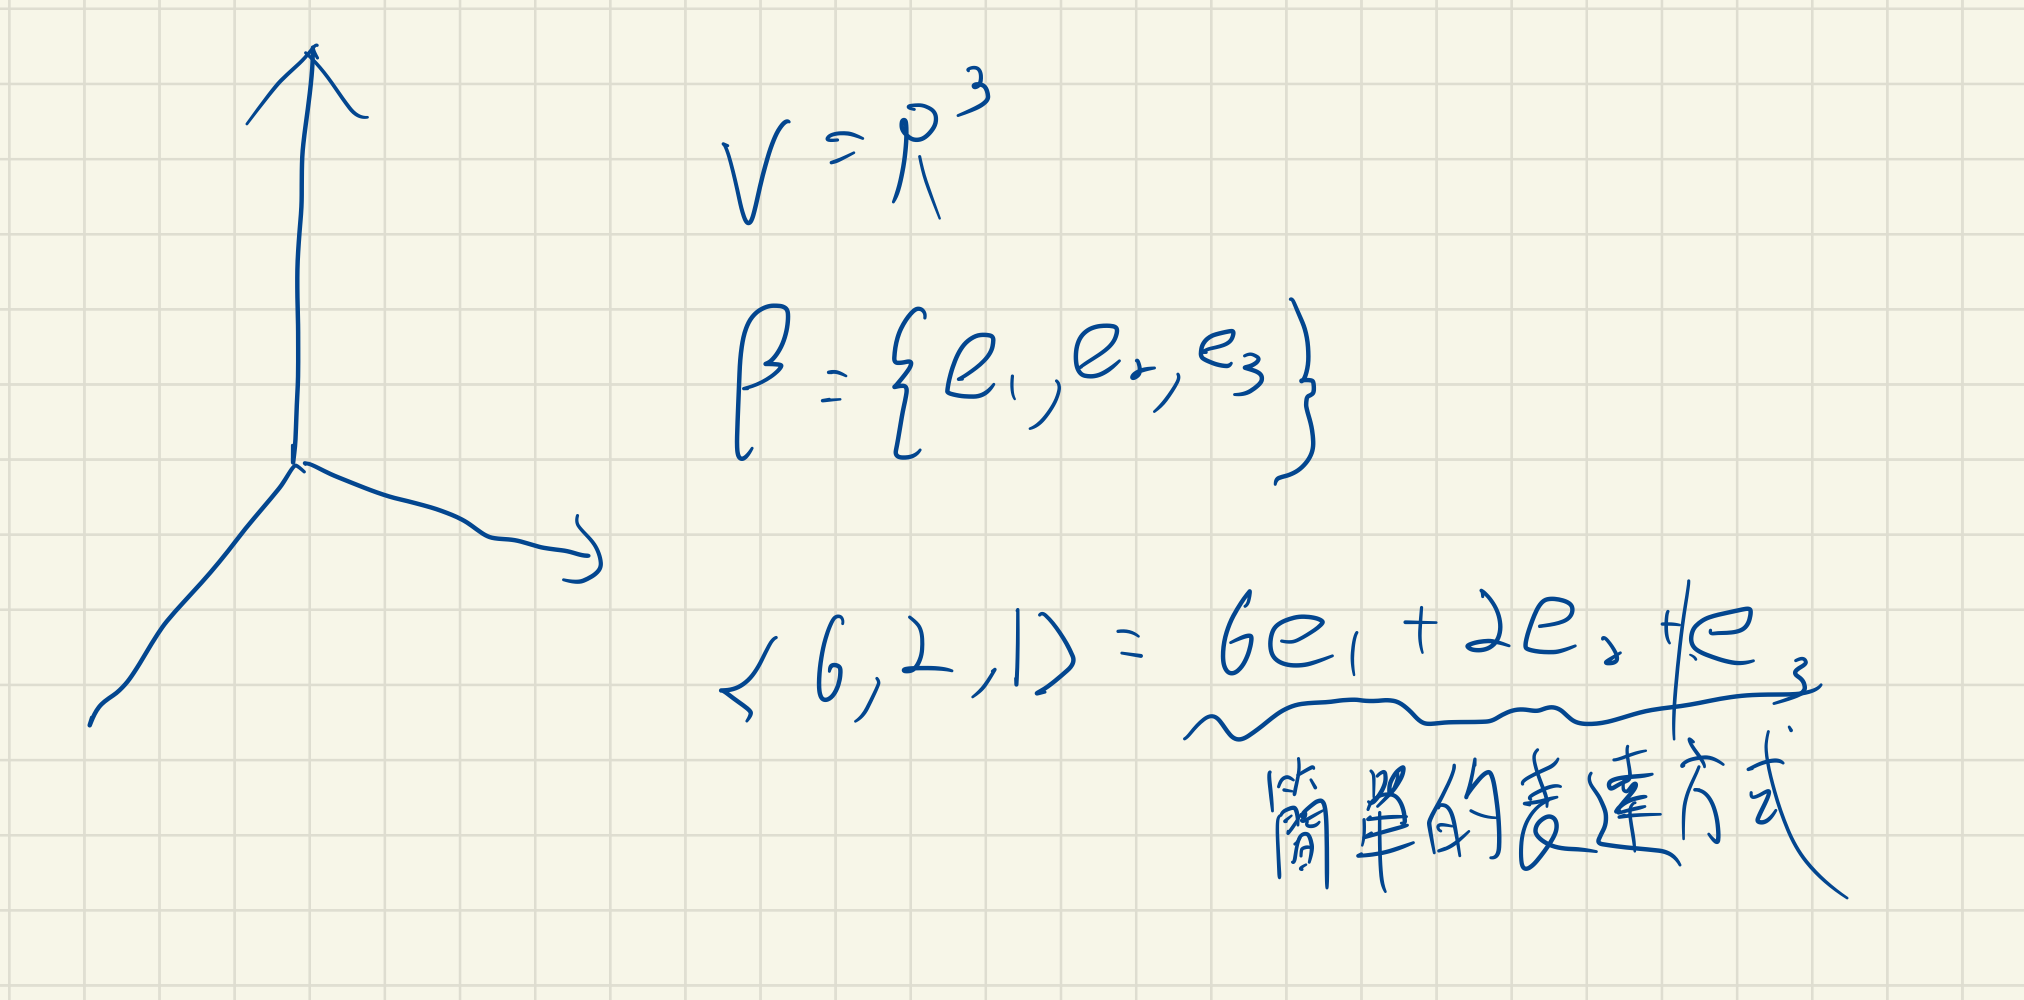 V = R³
β = {e₁, e₂, e₃}
<6, 2, 1> = 6e₁ + 2e₂ + 1e₃
簡單的表達方式